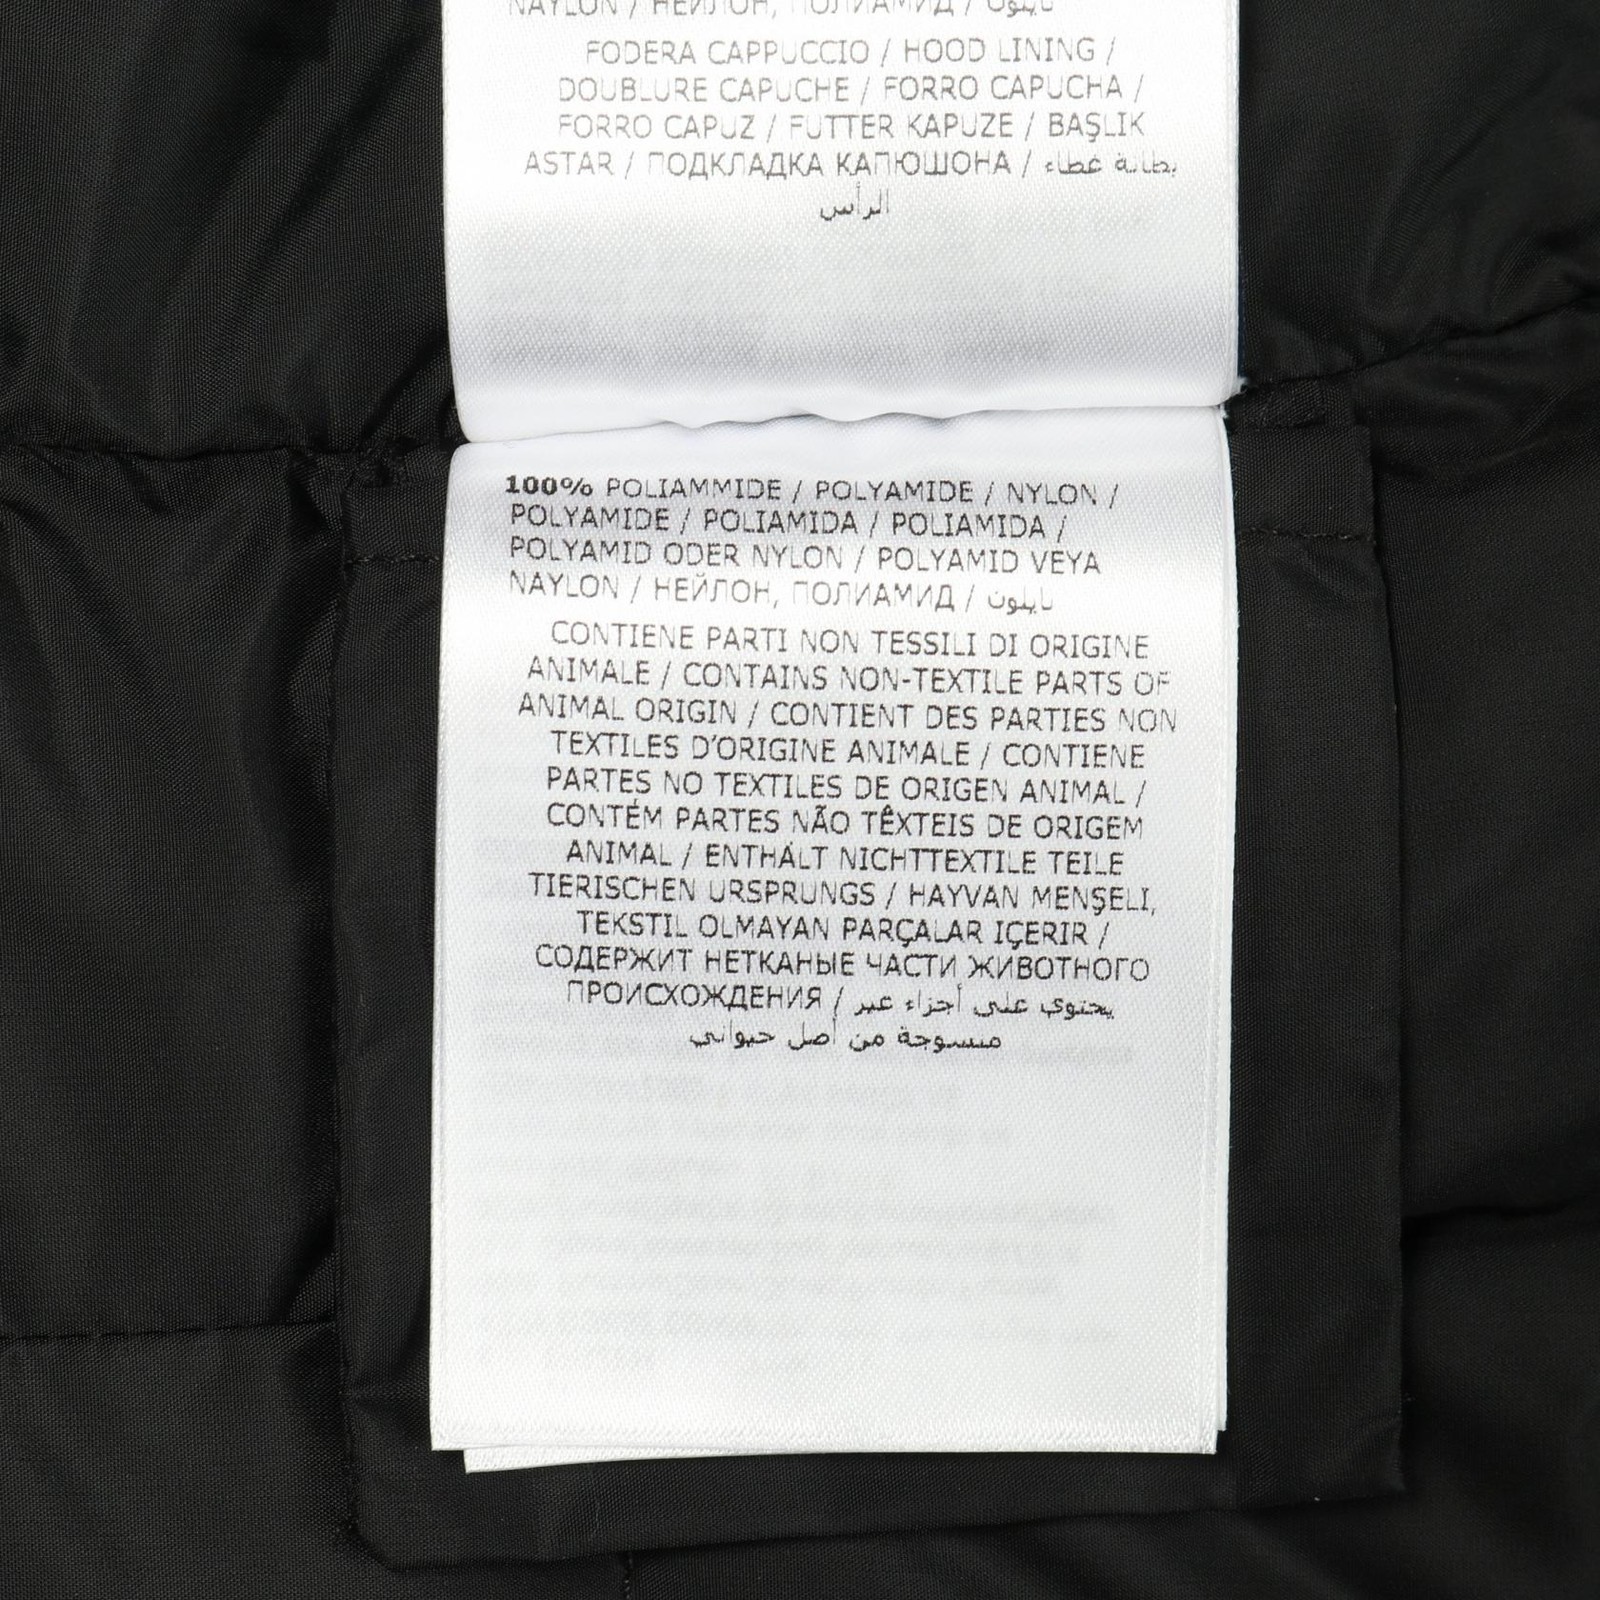 NAYLON / НЕЙЛОН, ПОЛИАМИД / نايلون
FODERA CAPPUCCIO / HOOD LINING /
DOUBLURE CAPUCHE / FORRO CAPUCHA /
FORRO CAPUZ / FUTTER KAPUZE / BAŞLIK
ASTAR / ПОДКЛАДКА КАПЮШОНА / بطانة غطاء
الرأس
100% POLIAMMIDE / POLYAMIDE / NYLON /
POLYAMIDE / POLIAMIDA / POLIAMIDA /
POLYAMID ODER NYLON / POLYAMID VEYA
NAYLON / НЕЙЛОН, ПОЛИАМИД / نايلون
CONTIENE PARTI NON TESSILI DI ORIGINE
ANIMALE / CONTAINS NON-TEXTILE PARTS OF
ANIMAL ORIGIN / CONTIENT DES PARTIES NON
TEXTILES D'ORIGINE ANIMALE / CONTIENE
PARTES NO TEXTILES DE ORIGEN ANIMAL /
CONTÉM PARTES NÃO TÊXTEIS DE ORIGEM
ANIMAL / ENTHÄLT NICHTTEXTILE TEILE
TIERISCHEN URSPRUNGS / HAYVAN MENŞELI,
TEKSTIL OLMAYAN PARÇALAR IÇERIR /
СОДЕРЖИТ НЕТКАНЫЕ ЧАСТИ ЖИВОТНОГО
ПРОИСХОЖДЕНИЯ / يحتوي على أجزاء غير
منسوجة من أصل حيواني